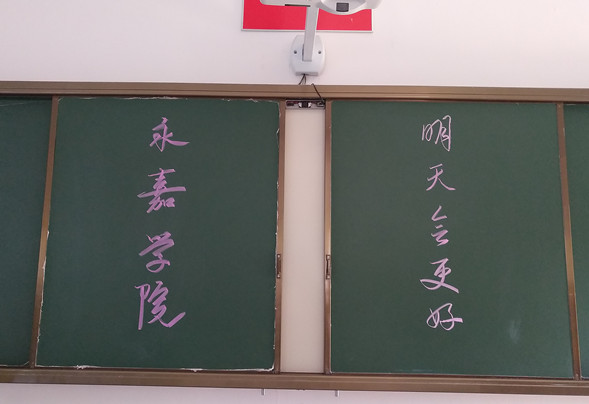 永嘉学院
明天会更好